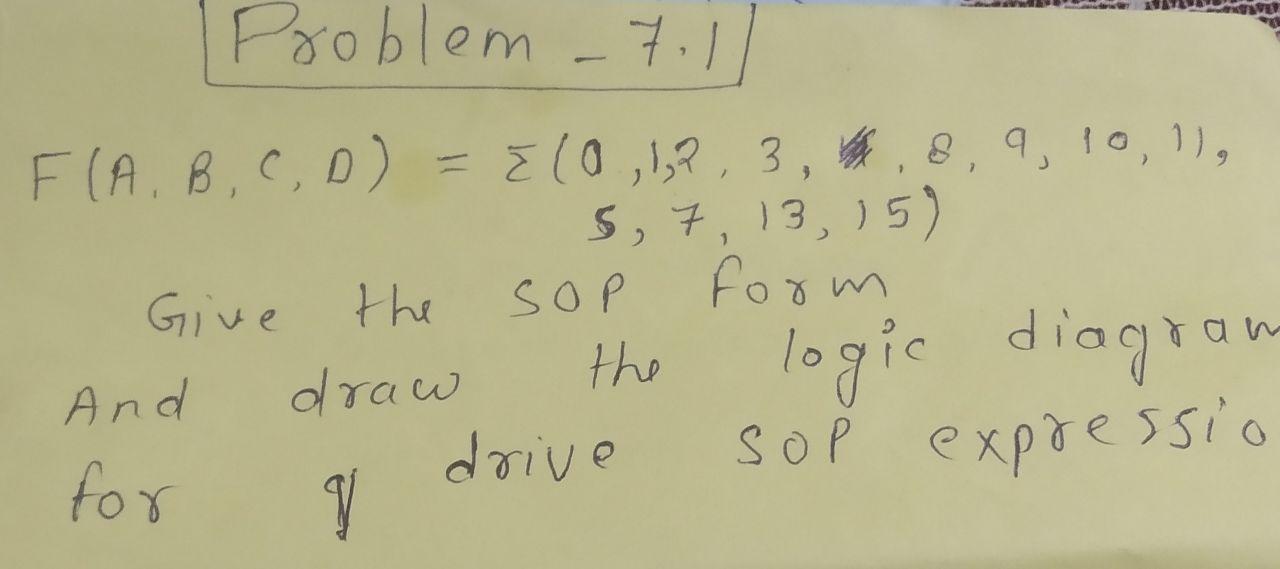 Problem - 7.1
F(A, B, C, D) = Σ(0,1,2, 3, , 8, 9, 10, 11,
5, 7, 13, 15)
Give the SOP form
And draw the logic diagram
for drive SOP expressio